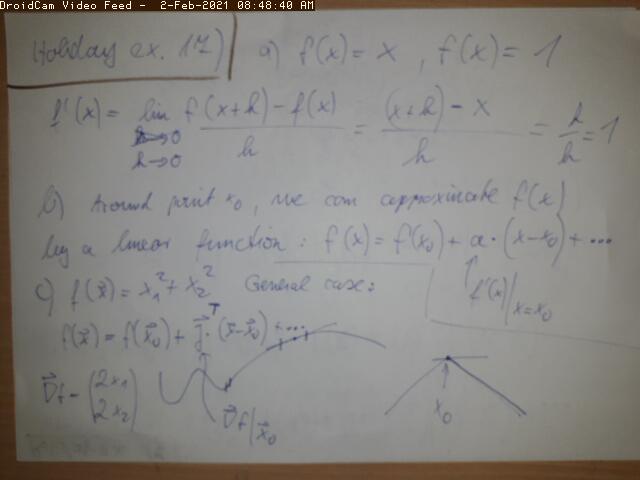 DroidCam Video Feed - 2-Feb-2021 08:48:40 AM
Holiday ex. 17) a) f(x) = x , f(x) = 1
f'(x) = lim f(x+h) - f(x) / h = (x+h) - x / h = h/h = 1
h→0
h→0
b) Around point x₀, we can approximate f(x)
by a linear function : f(x) = f(x₀) + a·(x-x₀) + ...
f'(x)|x=x₀
c) f(x⃗) = x₁² + x₂² General case:
f(x⃗) = f(x⃗₀) + ᵀ·(x⃗-x⃗₀) + ...
∇⃗f = (2x₁ 2x₂)
∇⃗f|x⃗₀
x₀